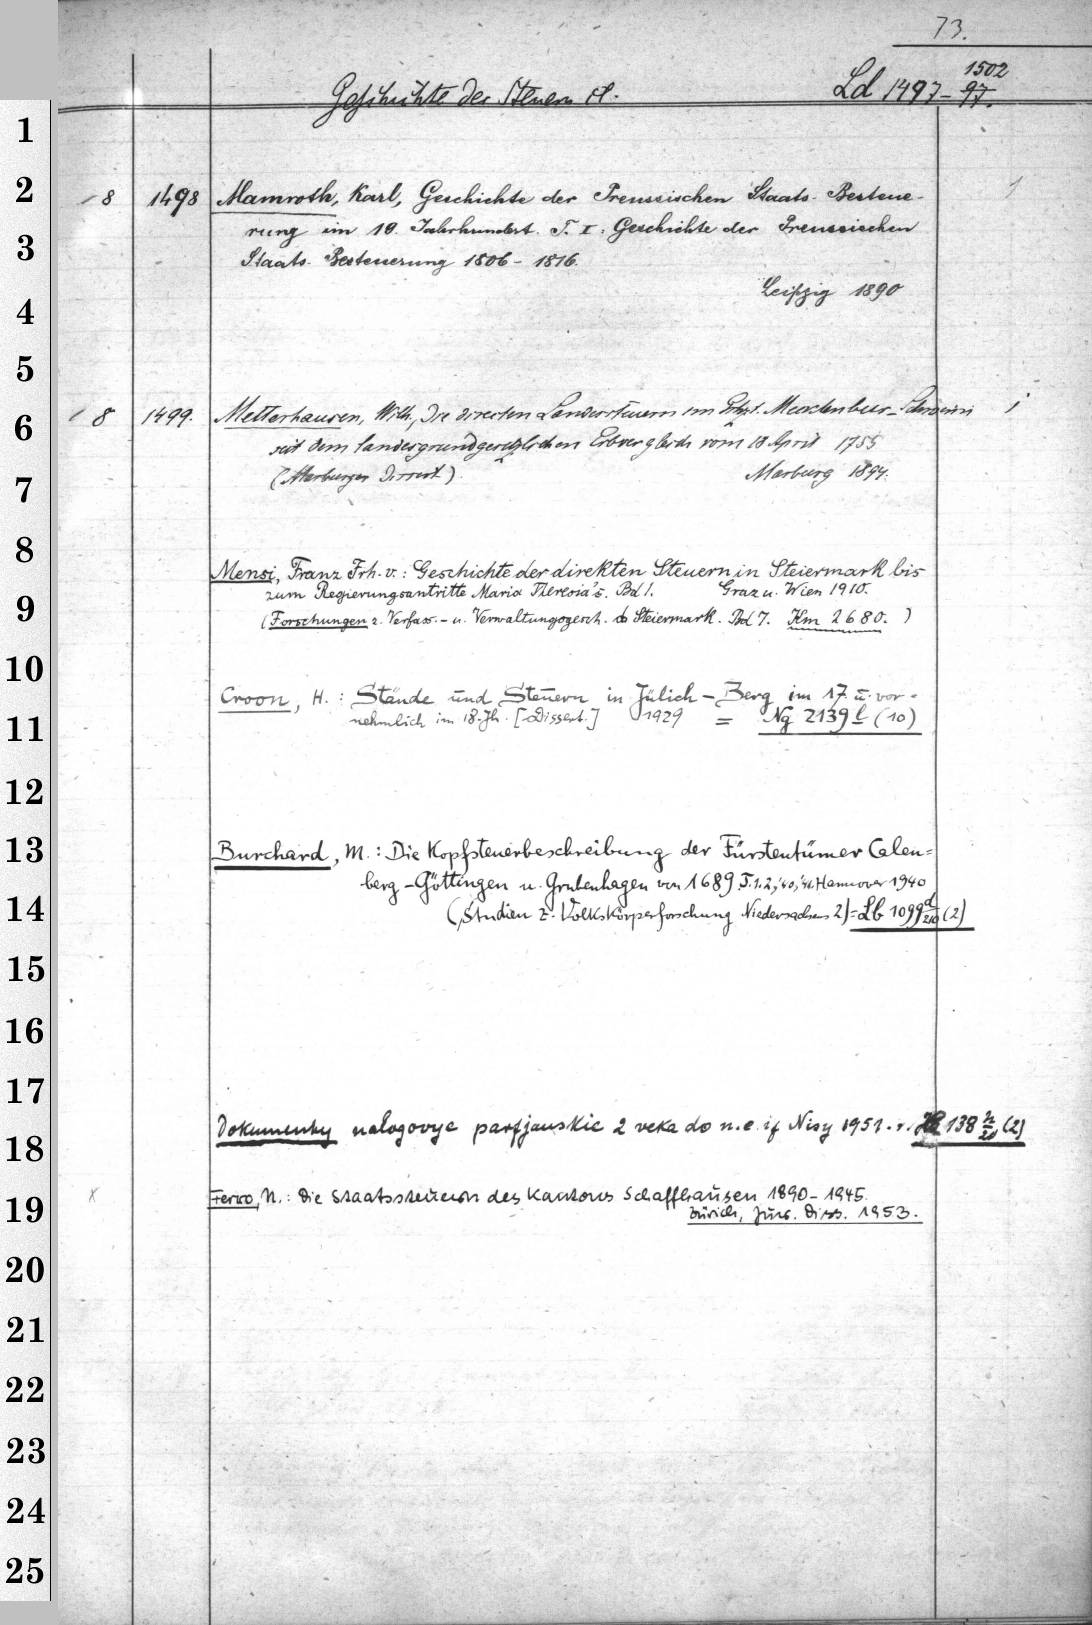 73.
Geschichte der Steuern
Ld 1497-
1502
97.
1
2
8 1498 Mamroth, Karl, Geschichte der Preussischen Staats-Besteue-
1
rung im 19. Jahrhundert. T. I: Geschichte der Preussischen
3
Staats-Besteuerung 1806-1816.
4
Leipzig 1890
5
6
8 1499. Metterhausen, Wilh, Die direcken Landessteuern im Mecklenburg-Schwerin
1
seit dem landesgrundgesetzlichen Erbvergleich vom 18 April 1755
7
(Marburger Dissert.) Marburg 1894.
8
Mensi, Franz Frh. v.: Geschichte der direkten Steuern in Steiermark bis
9
zum Regierungsantritte Maria Theresia's. Bd 1. Graz u. Wien 1910.
(Forschungen z. Verfass.- u. Verwaltungsgesch. d. Steiermark. Bd 7. Km 2680.)
10
Croon, H.: Stände und Steuern in Jülich-Berg im 17. u. vor-
11
nehmlich im 18. Jh. [Dissert.] 1929 = Ng 2139 l (10)
12
13
Burchard, M.: Die Kopfsteuerbeschreibung der Fürstentümer Calen=
berg-Göttingen u. Grubenhagen von 1689. T. 1. 2, '40, '41 Hannover 1940
14
(Studien z. Volkskörperforschung Niedersachsens 2) = Lb 1099 d/210 (2)
15
16
17
Dokumenty nalogovye parfjanskie 2 veka do n.e. if Nisy 1951. 138 (2)
18
x Ferro, N.: Die Staatssteuern des Kantons Schaffhausen 1890-1945.
19
Zürich, Jur. Diss. 1953.
20
21
22
23
24
25